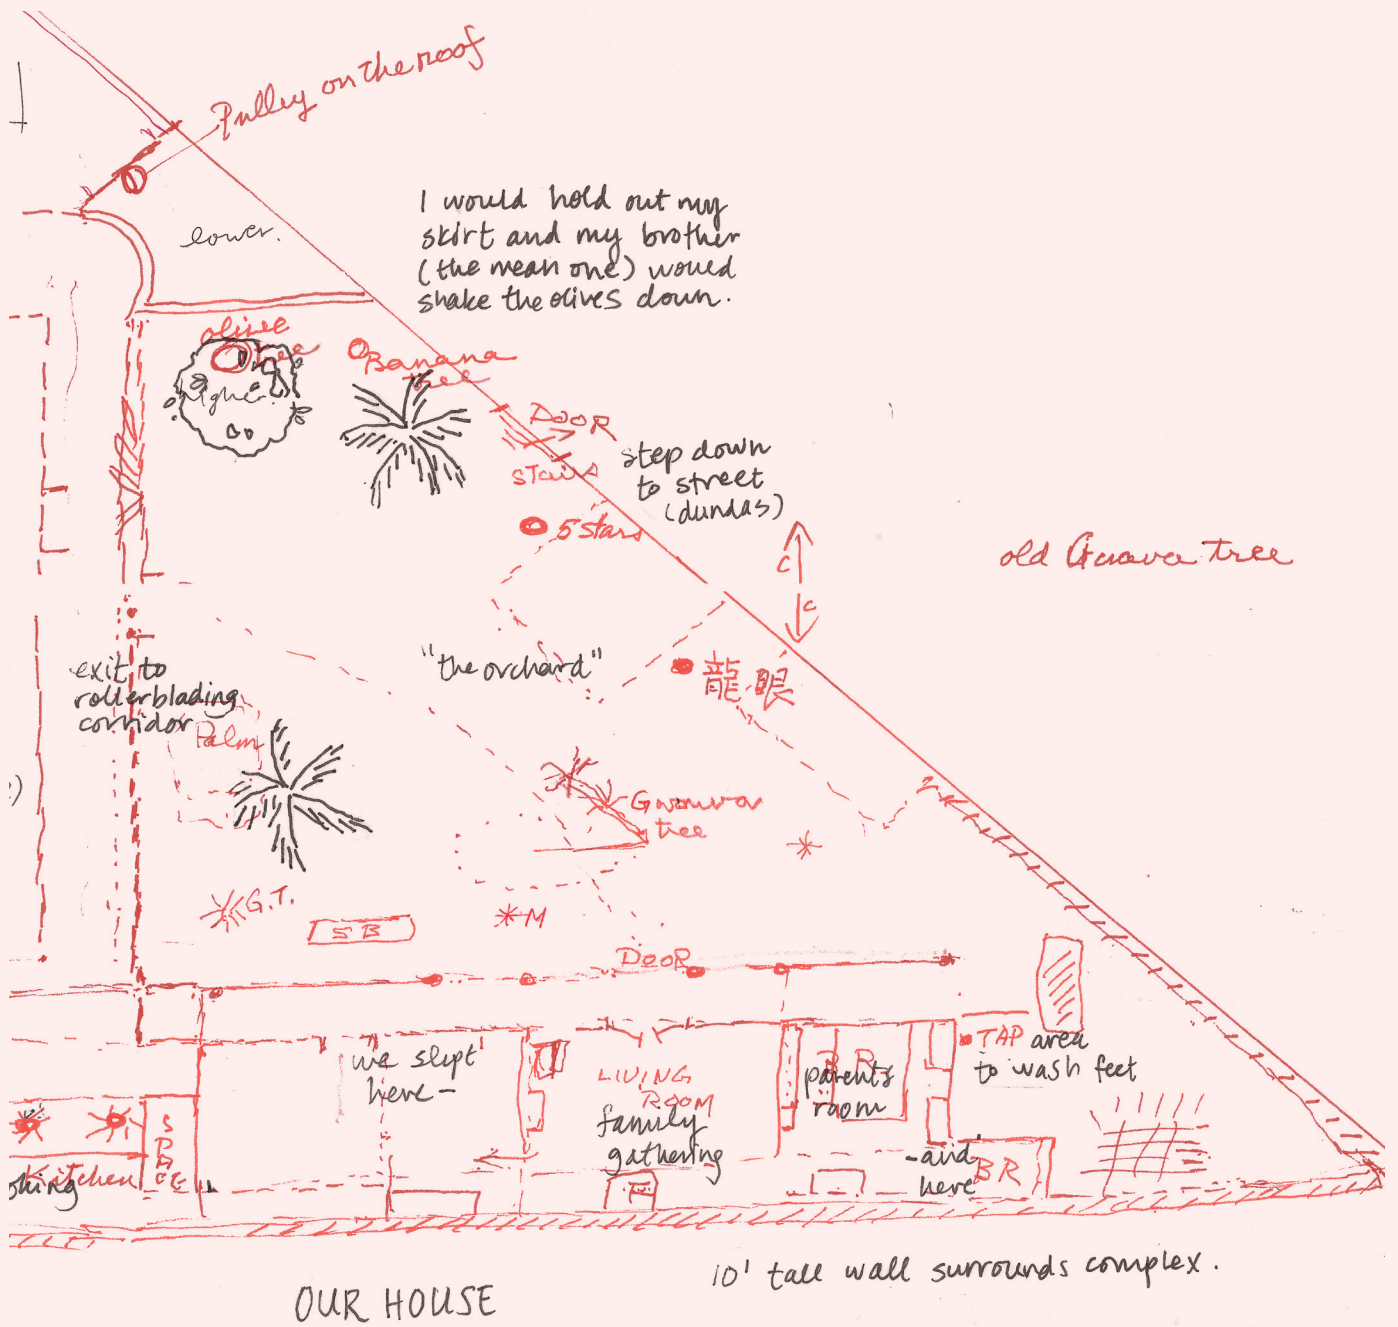 Pulley on the roof
lower.
I would hold out my
skirt and my brother
(the mean one) would
shake the olives down.
olive
tree
higher
Banana
tree
DOOR
stairs
step down
to street
(dundas)
5 stars
C
C
old Guava tree
"the orchard"
龍眼
exit to
rollerblading
corridor
Palm
Guava
tree
G.T.
SB
M
DOOR
we slept
here-
LIVING
ROOM
family
gathering
BR
parents
room
TAP area
to wash feet
-and
here
BR
SPACE
Kitchen
10' tall wall surrounds complex.
OUR HOUSE